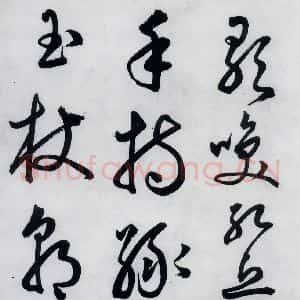 歌咲孔丘
手持綠
玉杖朝
shufawang.CN